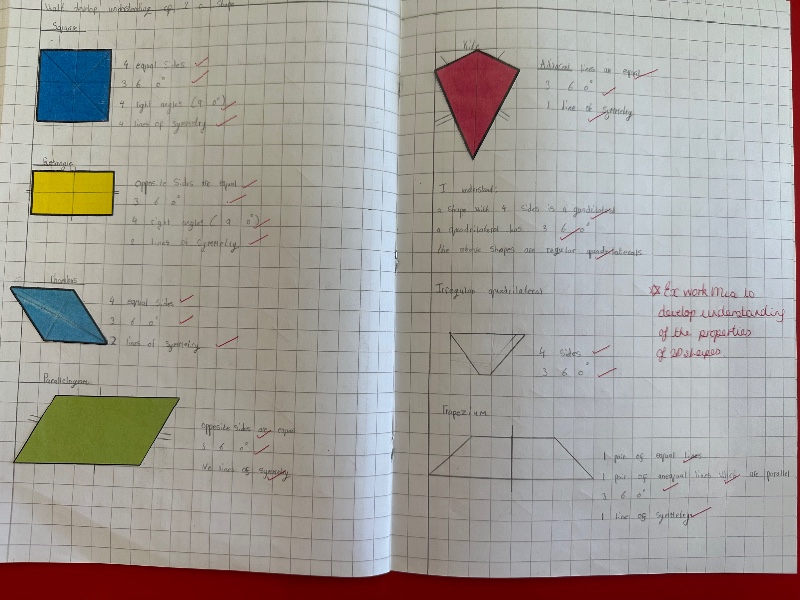 Walt develop understanding of 2 D shape
Square
4 equal sides
3 6 0°
4 right angles (9 0°)
4 lines of symmetry
Rectangle
Opposite sides are equal
3 6 0°
4 right angles (9 0°)
2 lines of symmetry
Rhombus
4 equal sides
3 6 0°
2 lines of symmetry
Parallelogram
Opposite sides are equal
3 6 0°
No lines of symmetry
Kite
Adjacent lines are equal
3 6 0°
1 line of symmetry
I understand:
a shape with 4 sides is a quadrilateral
a quadrilateral has 3 6 0°
the above shapes are regular quadrilaterals
Irregular quadrilateral
4 sides
3 6 0°
Trapezium
1 pair of equal lines
1 pair of unequal lines which are parallel
3 6 0°
1 line of symmetry
Ex work Mia to
develop understanding
of the properties
of 2D shapes